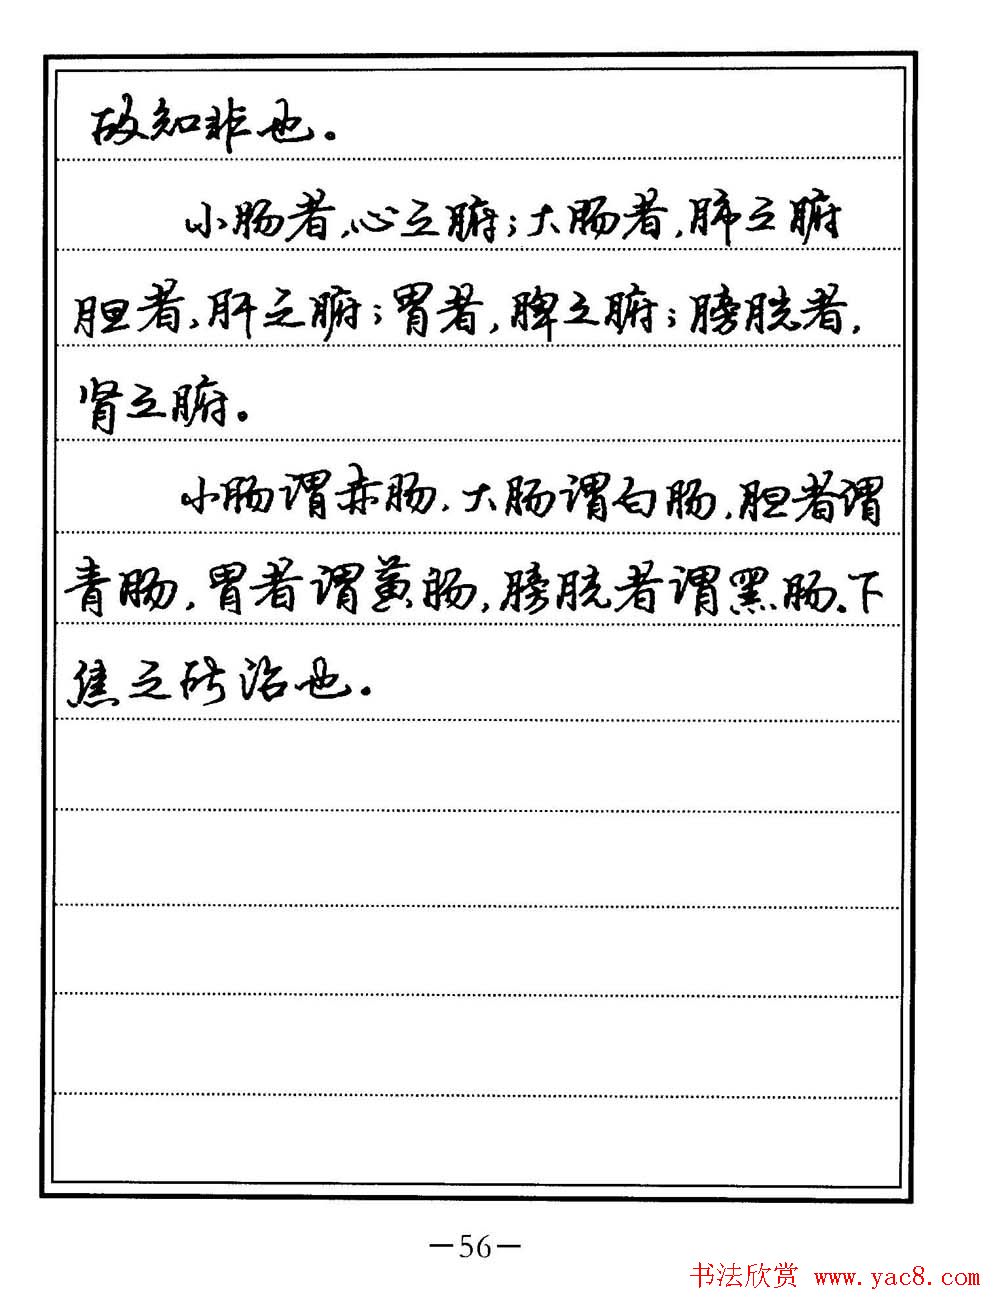 故知非也。
小肠者,心之腑;大肠者,肺之腑
胆者,肝之腑;胃者,脾之腑;膀胱者,
肾之腑。
小肠谓赤肠,大肠谓白肠,胆者谓
青肠,胃者谓黄肠,膀胱者谓黑肠。下
焦之所治也。
—56—
书法欣赏 www.yac8.com